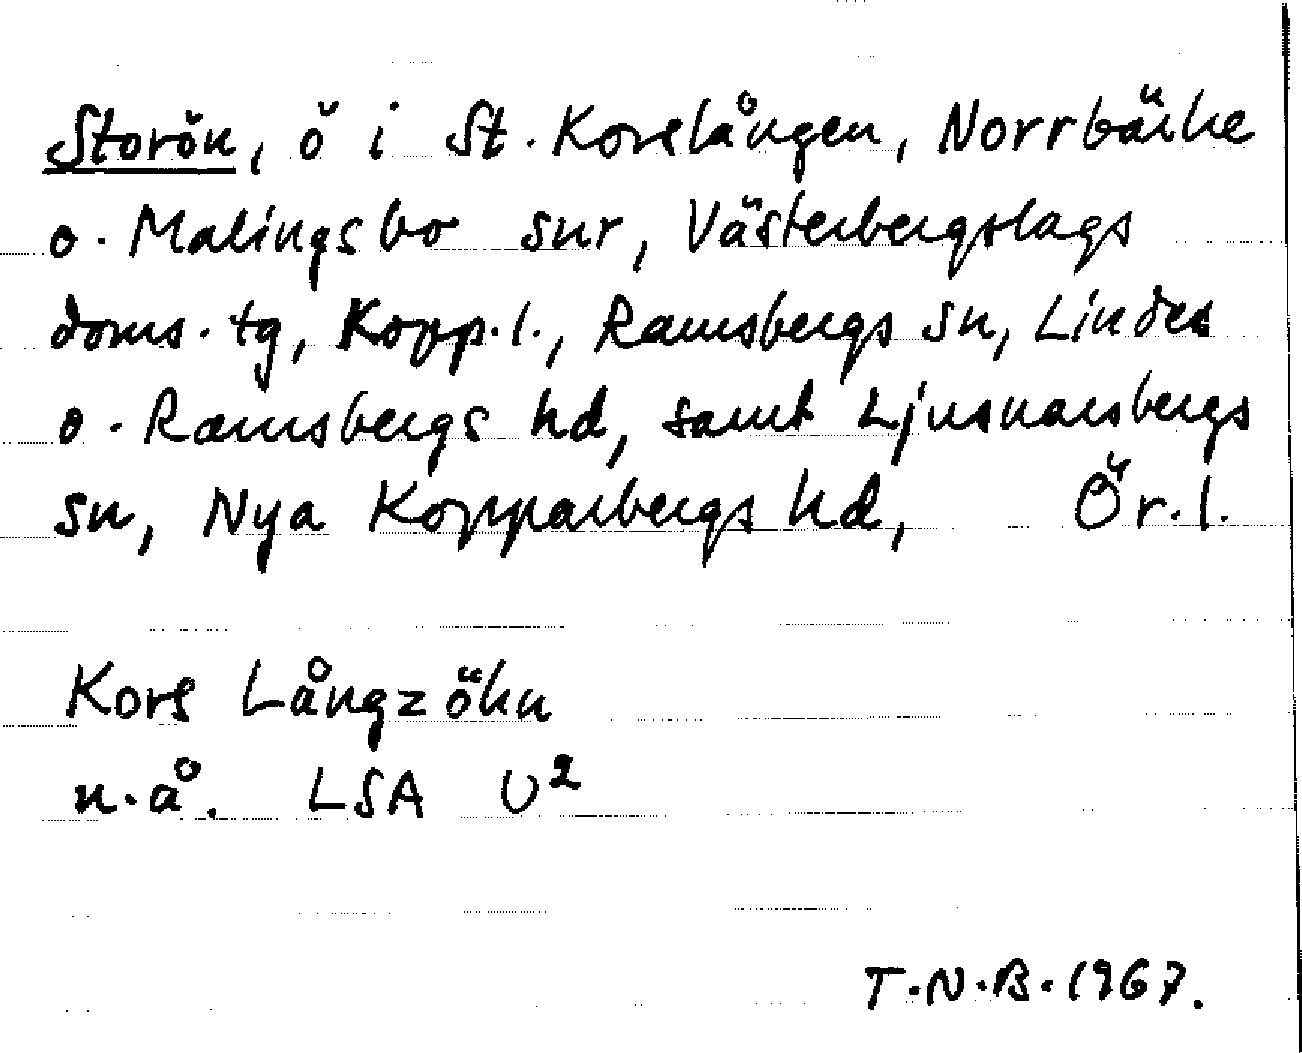 Storön, ö i St. Korslången, Norrbärke
o. Malingsbo snr, Västerbergslags
doms. tg, Kopp. l., Ramsbergs sn, Lindes
o. Ramsbergs hd, samt Ljusnarsbergs
sn, Nya Kopparbergs hd, Ör. l.
Kors Långz öhn
n. å. LSA U²
T.N.B. 1967.